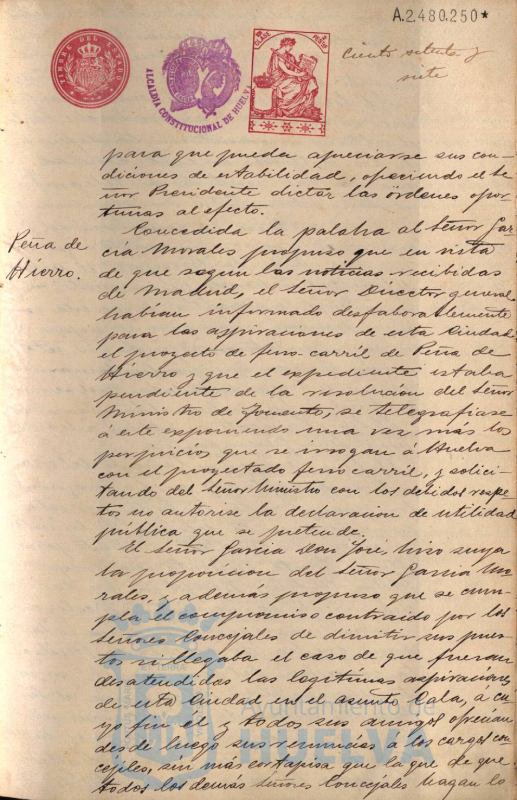 A.2.480.250*
TIMBRE DEL ESTADO
ALCALDIA CONSTITUCIONAL DE HUELVA
CLASE
ciento setenta y
siete
para que pueda apreciarse sus con-
diciones de estabilidad, ofreciendo el Se-
ñor Presidente dictar las órdenes opor-
tunas al efecto.
Peña de
Hierro.
Concedida la palabra al Señor Gar-
cía Morales propuso que en vista
de que segun las noticias recibidas
de Madrid, el Señor Director general
habian informado desfaborablemente
para las aspiraciones de esta Ciudad
el proyecto de ferro-carril de Peña de
Hierro y que el expediente estaba
pendiente de la resolucion del Señor
Ministro de Fomento, se telegrafiase
á este exponiendo una vez más los
perjuicios que se irrogan á Huelva
con el proyectado ferro carril, y solici-
tando del Señor Ministro con los debidos respe-
tos no autorise la declaracion de utilidad
pública que se pretende.
El Señor García Don José, hizo suya
la proposicion del Señor Garcia Mo-
rales, y además propuso que se cum-
pla el compromiso contraido por los
Señores Concejales de dimitir sus pues-
tos si llegaba el caso de que fueran
desatendidas las legítimas aspiraciones
de esta Ciudad en el asunto Cala, á cu-
yo fin él y todos sus amigos ofrecian
desde luego sus renuncias á los cargos con-
cejiles, sin más cortapisa que la de que
todos los demás Señores Concejales hagan lo
Ayuntamiento de
HUELVA